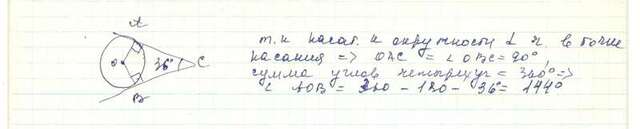 A
O 36° C
B
т.к касат. к окружности ⊥ r. в точке
касания => OAC = ∠ OBC = 90°,
сумма углов четырёхуг = 360° =>
∠ AOB = 360 - 180 - 36° = 144°